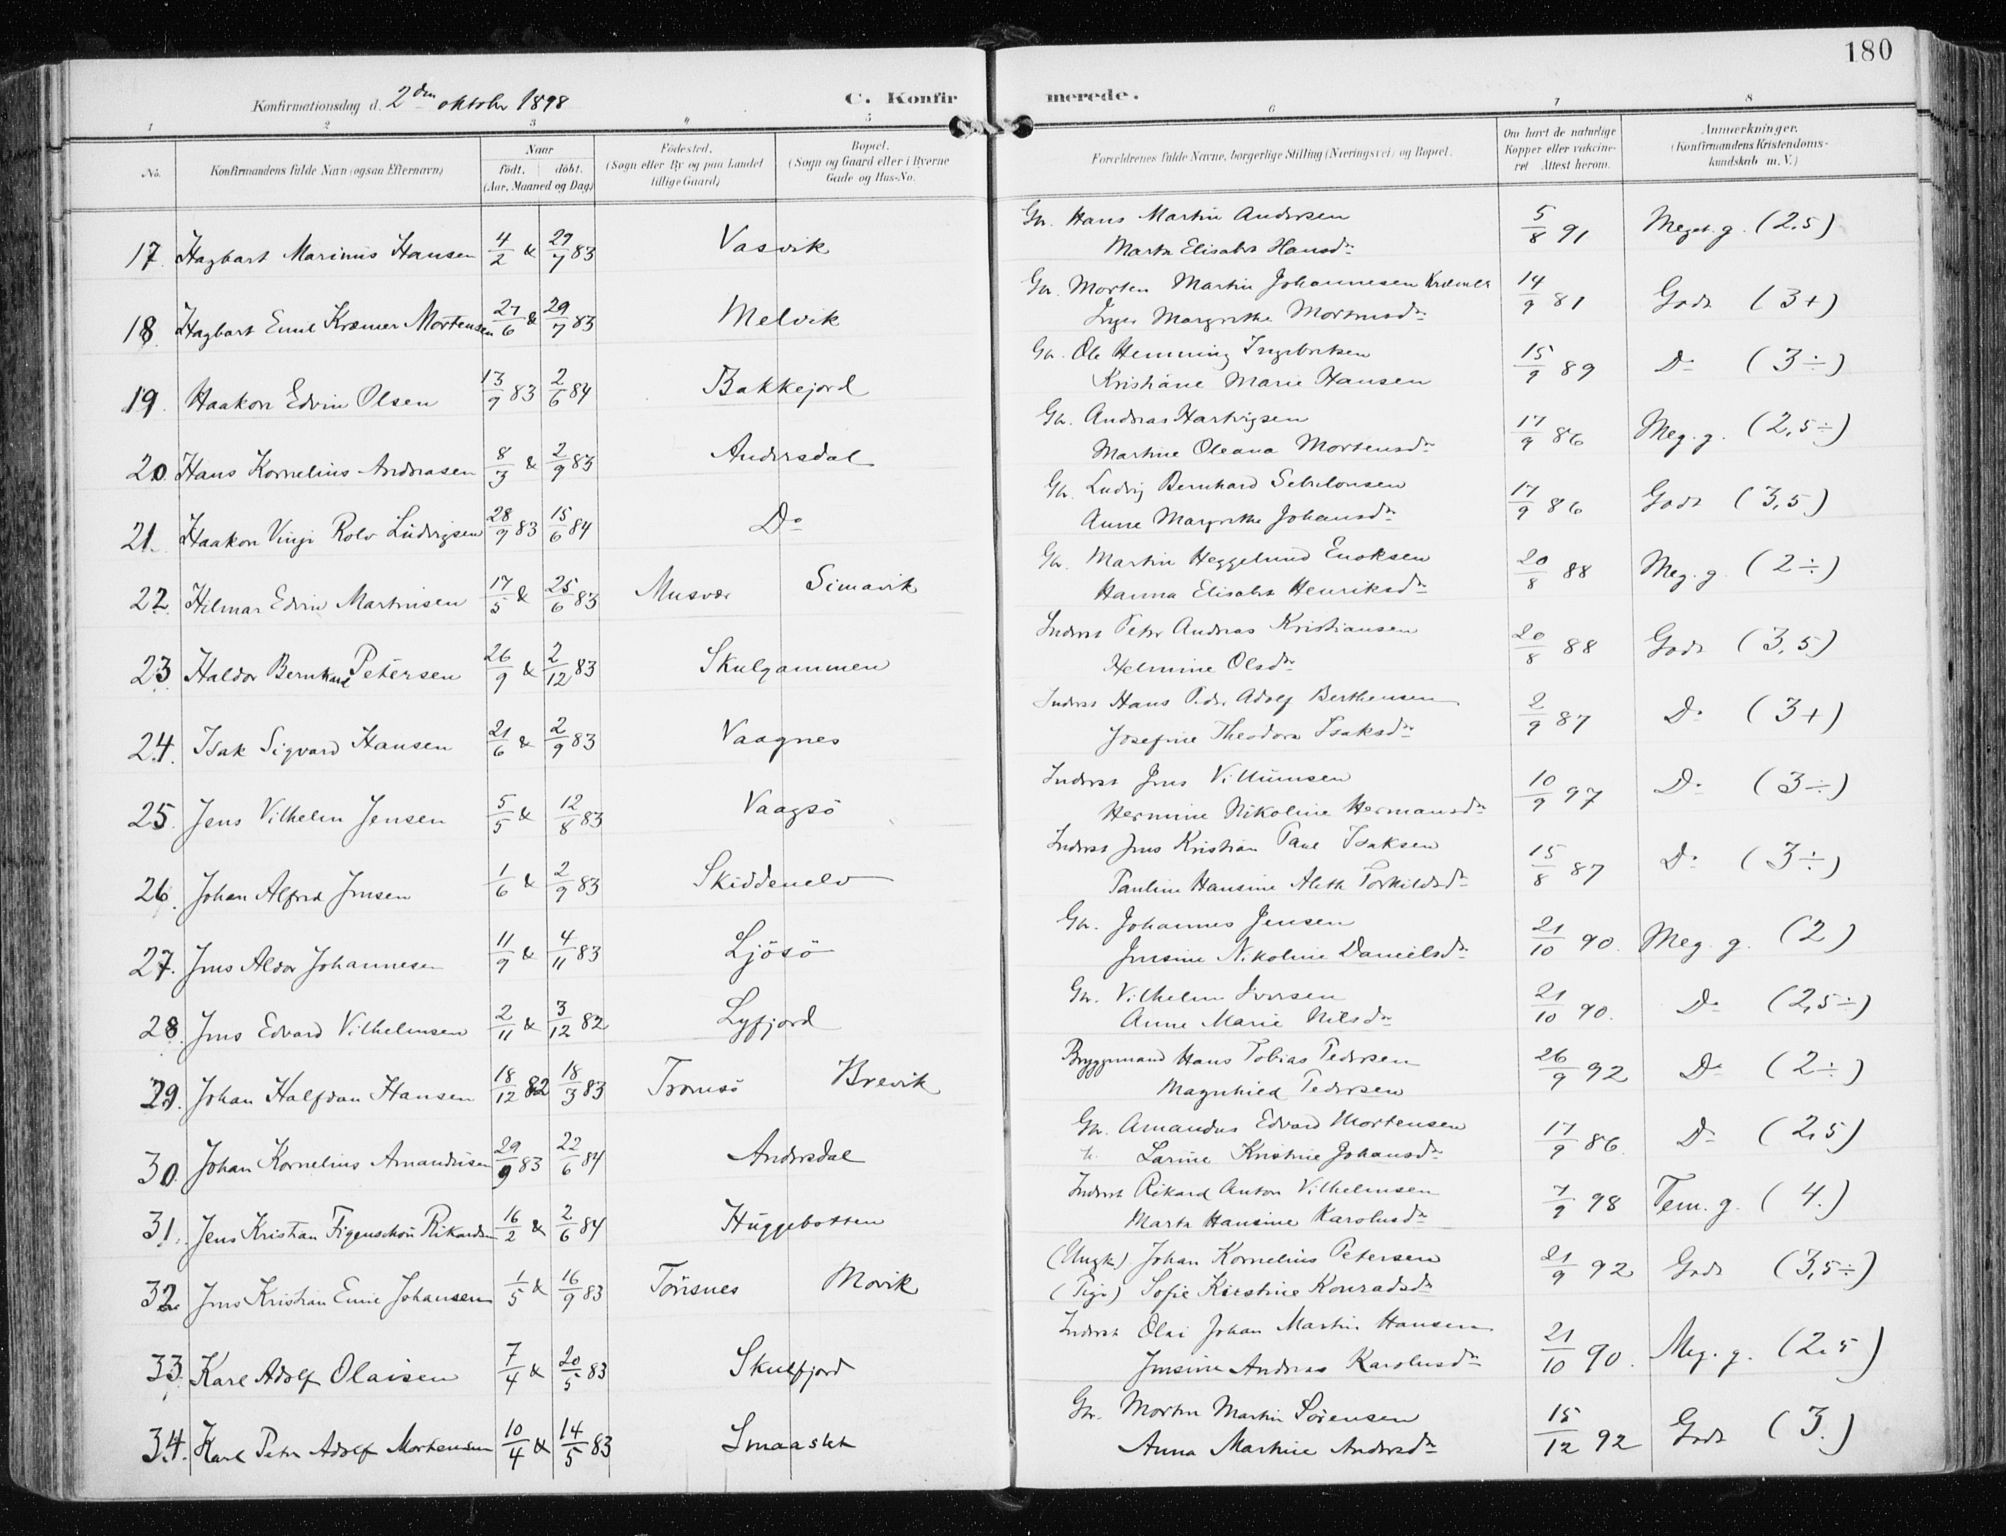 180
Konfirmationsdag d. 2den oktober 1898 C. Konfirmerede.
1 2 3 4 5 6 7 8
No. Konfirmandens fulde Navn (ogsaa Efternavn) Naar født. døbt. (Aar, Maaned og Dag) Fødested. (Sogn eller By og paa Landet tillige Gaard) Bopæl. (Sogn og Gaard eller i Byerne Gade og Hus-No. Forældrenes fulde Navne, borgerlige Stilling (Næringsvei) og Bopæl. Om havt de naturlige Kopper eller vakcineret Attest herom. Anmerkninger. (Konfirmandens Kristendomskundskab m. V.)
17. Hagbart Marinus Hansen 4/2 & 29/7 83 Vasvik Gbr. Hans Martin Andersen 5/8 91 Meget g. (2,5)
Marta Elisabet Hansdr
18. Hagbart Emil Kræmer Mortensen 27/6 & 29/7 83 Melvik Gbr. Morten Martin Johannesen Kræmer 14/9 81 Godt (3+)
Inger Margrethe Mortensdr
19. Haakon Edvin Olsen 13/9 83 2/6 84 Bakkejord Gbr. Ole Hemming Ingebrktsen 15/9 89 Do (3÷)
Kristiane Marie Hansen
20. Hans Kornelius Andreasen 8/3 & 2/9 83 Andersdal Gbr. Andreas Hartvigsen 17/9 86 Meg. g. (2,5÷)
Martine Oleana Mortensdr
21. Haakon Vingi Rolv Ludvigsen 28/9 83 15/6 84 Do Gbr. Ludvig Bernhard Sebulonsen 17/9 86 Godt (3,5)
Anne Margrethe Johansdr
22. Hilmar Edvin Martinsen 17/5 & 25/6 83 Musvær Simavik Gbr. Martin Heggelund Enoksen 20/8 88 Meg. g. (2÷)
Hanna Elisabet Henriksdr
23. Haldor Bernhard Petersen 26/9 & 2/12 83 Skulgammen Inderst Peter Andreas Kristiansen 20/8 88 Godt (3,5)
Helmine Olsdr
24. Isak Sigvard Hansen 21/6 & 2/9 83 Vaagnes Inderst Hans Peder Adolf Berthensen 2/9 87 Do (3+)
Josefine Theodora Isaksdr
25. Jens Vilhelm Jensen 5/5 & 12/8 83 Vaagsö Inderst Jens Villumsen 10/9 97 Do (3÷)
Hermine Nikoline Hermansdr
26. Johan Alfred Jensen 1/6 & 2/9 83 Skiddenelv Inderst Jens Kristian Paul Isaksen 15/8 87 Do (3÷)
Pauline Hansine Aleth Torkildsdr
27. Jens Aldor Johannesen 11/9 & 4/11 83 Ljösö Gbr. Johannes Jensen 21/10 90. Meg. g. (2)
Jensine Nikoline Danielsdr
28. Jens Edvard Vilhelmsen 2/11 & 3/12 82 Lyfjord Gbr. Vilhelm Iversen 21/10 90. Do (2,5÷)
Anne Marie Nilsdr
29. Johan Halfdan Hansen 18/12 82 18/3 83 Tromsö Brevik Bryggemand Hans Tobias Pedersen 26/9 92 Do (2÷)
Magnhild Pedersen
30. Johan Kornelius Amandusen 29/9 83 22/6 84 Andersdal Gbr. Amandus Edvard Mortensen 17/9 86. Do (2,5)
h. Larine Kristine Johansdr
31. Jens Kristian Figenschou Rikardsen 16/2 & 2/6 84 Hüggebotten Inderst Rikard Anton Vilhelmsen 7/9 98 Tem. g. (4.)
Marta Hansine Karolusdr
32. Jens Kristian Emil Johansen 1/5 & 16/9 83 Tönsnes Movik (Ungk.) Johan Kornelius Petersen 21/9 92 Godt (3,5÷)
(Pige) Sofie Kirstine Konradsdr
33. Karl Adolf Olaisen 7/4 & 20/5 83 Skulfjord Inderst Olai Johan Martin Hansen 21/10 90. Meg. g. (2,5)
Jensine Andrea Karolusdr
34. Karl Peter Adolf Mortensen 10/4 & 14/5 83 Smaaslet Gbr. Morten Martin Sörensen 15/12 92 Godt (3.)
Anna Martine Andersdr